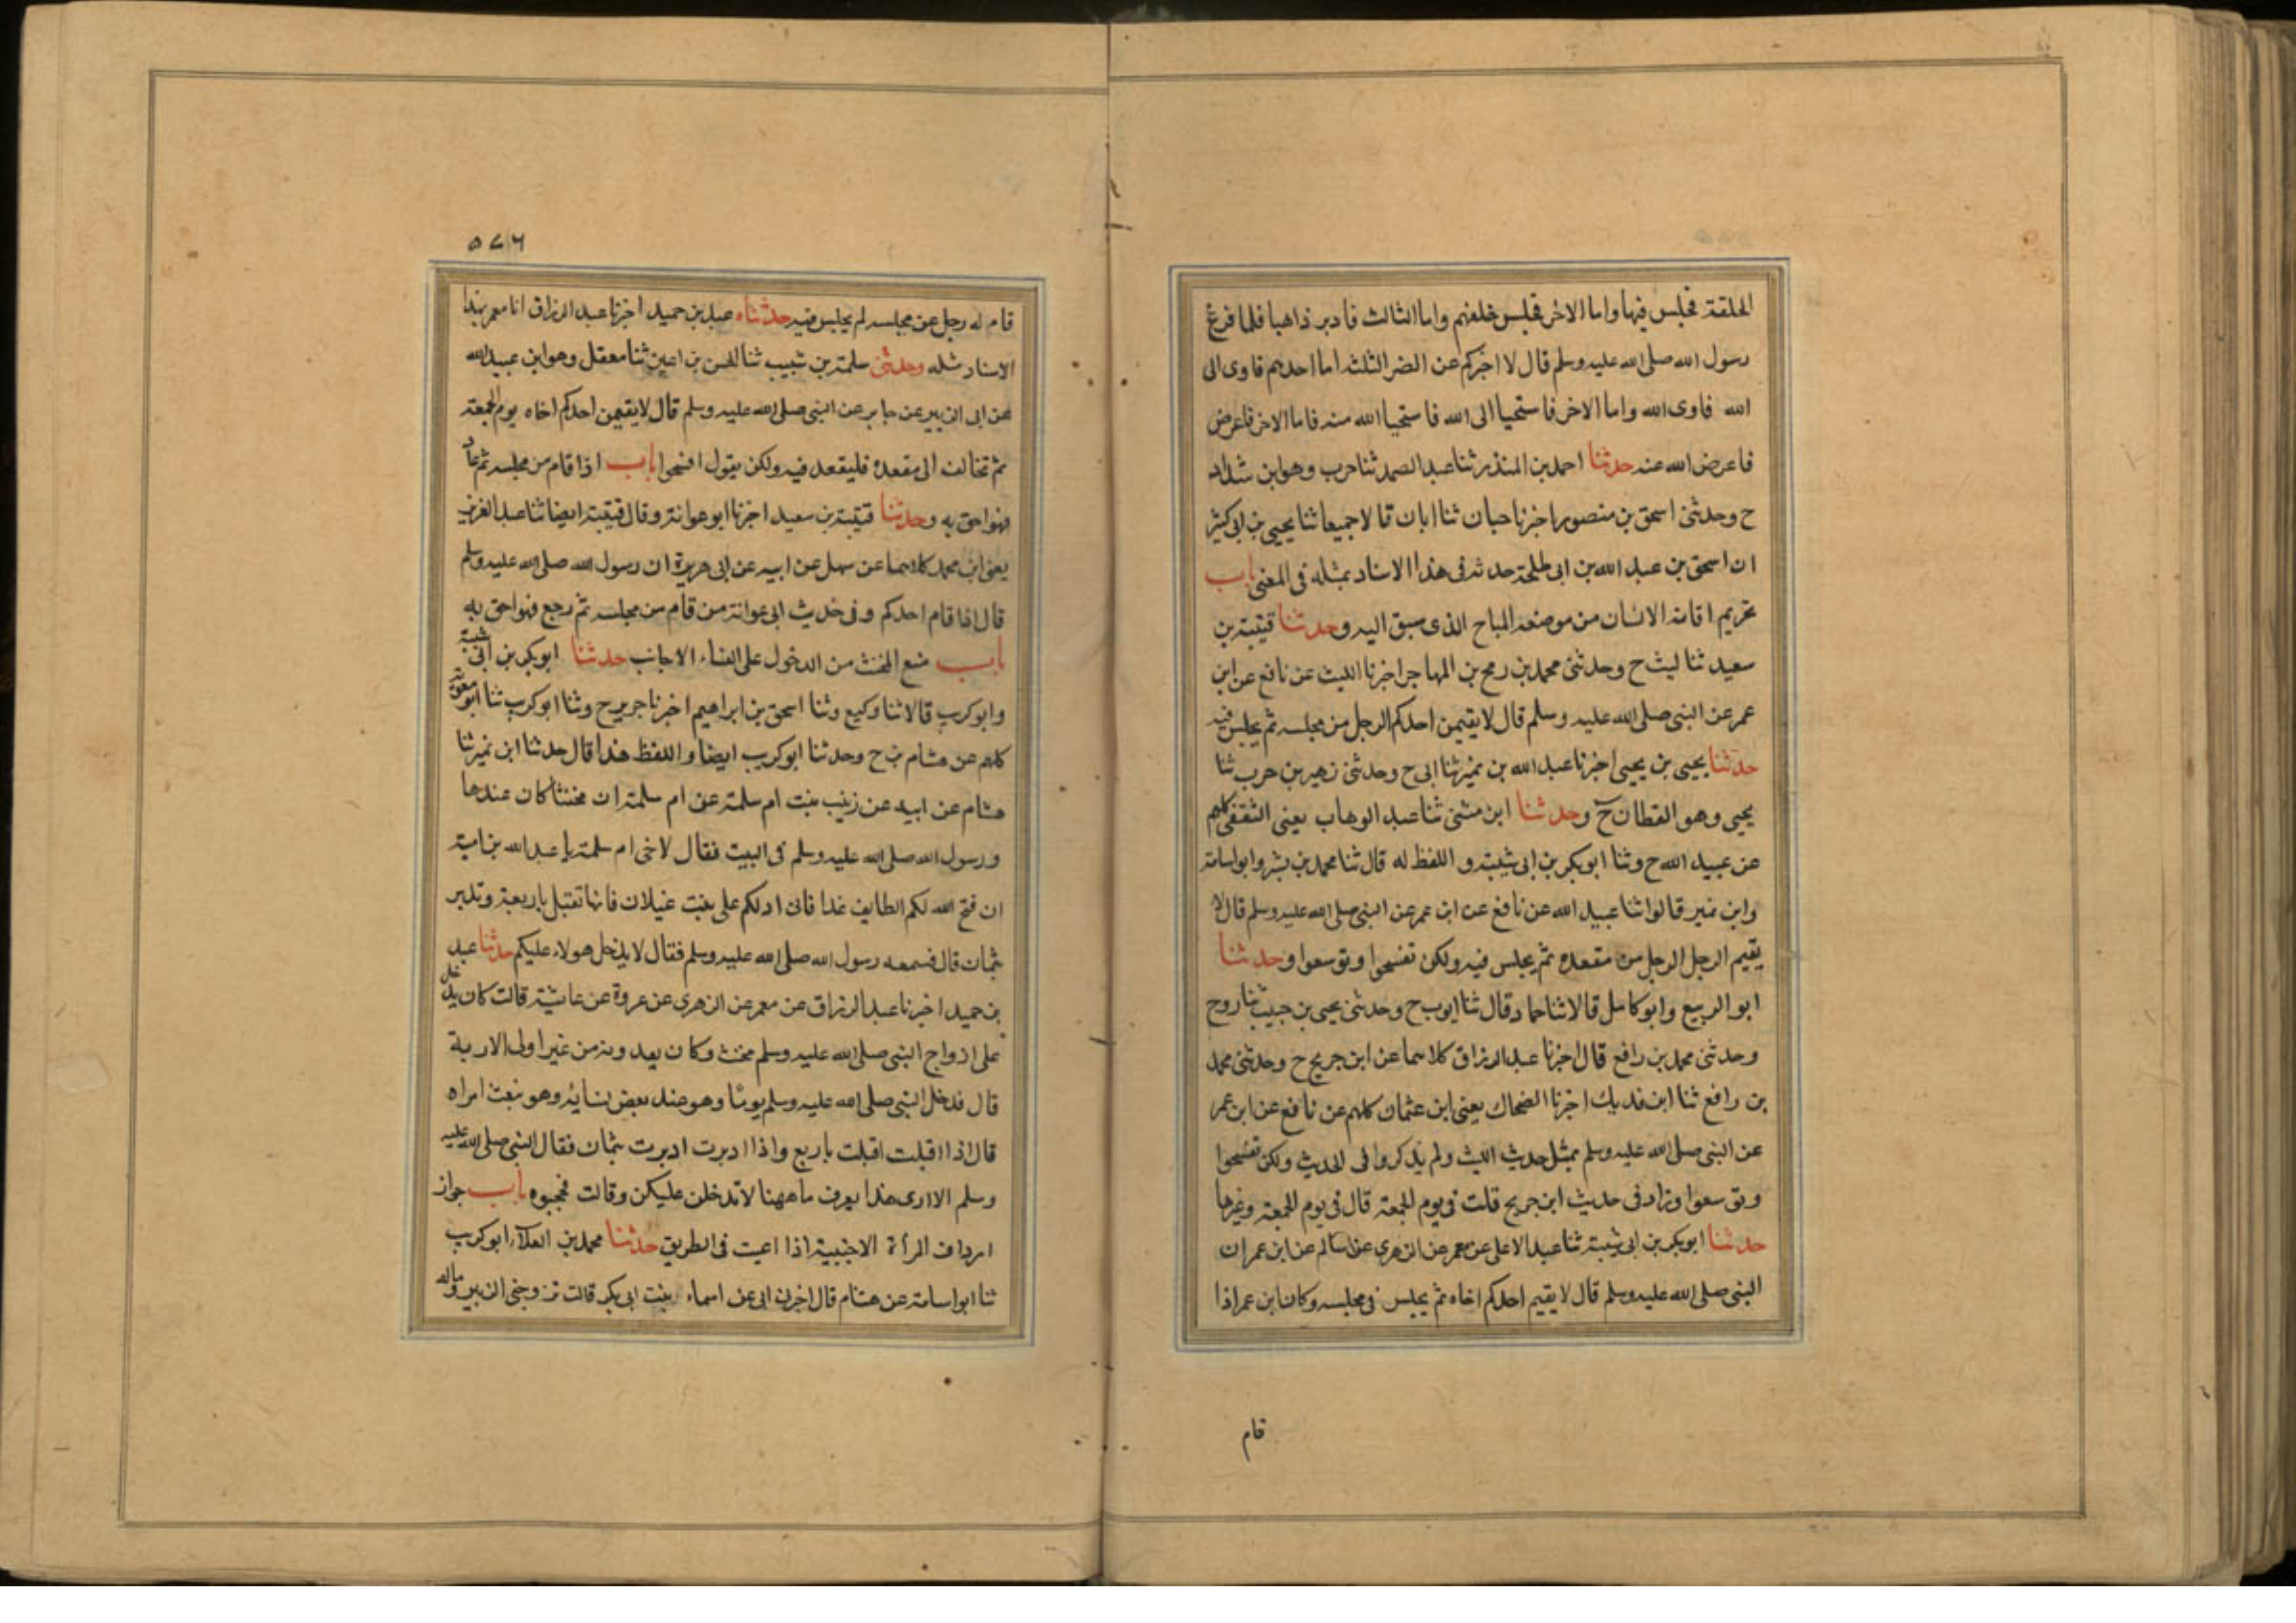 الحلقة فجلس فيها واما الاخر فجلس خلفهم واما الثالث فادبر ذاهبا فلما فرغ
رسول الله صلى الله عليه وسلم قال لا اخبركم عن النفر الثلثة اما احدهم فاوى الى
الله فاوى الله واما الاخر فاستحيا الى الله فاستحيا الله منه فاما الاخر فاعرض
فاعرض الله عنه حدثنا احمد بن المنذر ثنا عبد الصمد ثنا حرب وهو ابن شداد
ح وحدثنى اسحق بن منصور اخبرنا حبان ثنا ابان قالا جميعا ثنا يحيى بن ابى كثير
ان اسحق بن عبد الله بن ابى طلحة حدثه فى هذا الاسناد بمثله فى المعنى باب
تحريم اقامة الانسان من موضعه المباح الذى سبق اليه وحدثنا قتيبة بن
سعيد ثنا ليث ح وحدثنى محمد بن رمح بن المهاجر اخبرنا الليث عن نافع عن ابن
عمر عن النبى صلى الله عليه وسلم قال لا يقيمن احدكم الرجل من مجلسه ثم يجلس فيه
حدثنا يحيى بن يحيى اخبرنا عبد الله بن نمير ثنا ابى ح وحدثنى زهير بن حرب ثنا
يحيى وهو القطان ح وحدثنا ابن مثنى ثنا عبد الوهاب يعنى الثقفى كلهم
عن عبيد الله ح وثنا ابو بكر بن ابى شيبة و اللفظ له قال ثنا محمد بن بشر وابو اسامة
وابن نمير قالوا ثنا عبيد الله عن نافع عن ابن عمر عن النبى صلى الله عليه وسلم قال لا
يقيم الرجل الرجل من مقعده ثم يجلس فيه ولكن تفسحوا وتوسعوا وحدثنا
ابو الربيع وابو كامل قالا ثنا حماد قال ثنا ايوب ح وحدثنى يحيى بن حبيب ثنا روح
وحدثنى محمد بن رافع قال اخبرنا عبد الرزاق كلاهما عن ابن جريج ح وحدثنى محمد
بن رافع ثنا ابن فديك اخبرنا الضحاك يعنى ابن عثمان كلهم عن نافع عن ابن عمر
عن النبى صلى الله عليه وسلم بمثل حديث الليث ولم يذكروا فى الحديث ولكن تفسحوا
وتوسعوا وزاد فى حديث ابن جريج قلت فى يوم الجمعة قال فى يوم الجمعة وغيرها
حدثنا ابو بكر بن ابى شيبة ثنا عبد الاعلى عن معمر عن الزهرى عن سالم عن ابن عمر ان
النبى صلى الله عليه وسلم قال لا يقيم احدكم اخاه ثم يجلس فى مجلسه وكان ابن عمر اذا
قام
٥٧٦
قام له رجل عن مجلسه لم يجلس فيه حدثناه عبد بن حميد اخبرنا عبد الرزاق انا معمر بهذا
الاسناد مثله وحدثنى سلمة بن شبيب ثنا الحسن بن اعين ثنا معقل وهو ابن عبيد الله
عن ابى الزبير عن جابر عن النبى صلى الله عليه وسلم قال لا يقيمن احدكم اخاه يوم الجمعة
ثم تخالف الى مقعده فليقعد فيه ولكن يقول افسحوا باب اذا قام من مجلسه ثم عاد
فهو احق به وحدثنا قتيبة بن سعيد اخبرنا ابو عوانة وقال قتيبة ايضا ثنا عبد العزيز
يعنى ابن محمد كلاهما عن سهل عن ابيه عن ابى هريرة ان رسول الله صلى الله عليه وسلم
قال اذا قام احدكم وفى حديث ابى عوانة من قام من مجلسه ثم رجع فهو احق به
باب منع المخنث من الدخول على النساء الاجانب حدثنا ابو بكر بن ابى شيبة
وابو كريب قالا ثنا وكيع وثنا اسحق بن ابراهيم اخبرنا جرير ح وثنا ابو كريب ثنا ابو معوية
كلهم عن هشام ح وحدثنا ابو كريب ايضا و اللفظ هذا قال حدثنا ابن نمير ثنا
هشام عن ابيه عن زينب بنت ام سلمة عن ام سلمة ان مخنثا كان عندها
ورسول الله صلى الله عليه وسلم فى البيت فقال لاخى ام سلمة يا عبد الله بن امية
ان فتح الله لكم الطايف غدا فانى ادلكم على بنت غيلان فانها تقبل باربعة وتدبر
بثمان قال فسمعه رسول الله صلى الله عليه وسلم فقال لا يدخل هولاء عليكم حدثنا عبد
بن حميد اخبرنا عبد الرزاق عن معمر عن الزهرى عن عروة عن عايشة قالت كان يدخل
على ازواج النبى صلى الله عليه وسلم مخنث وكان يعدونه من غير اولى الاربة
قال فدخل النبى صلى الله عليه وسلم يوما وهو عند بعض نسائه وهو ينعت امراه
قال اذا اقبلت اقبلت باربع واذا ادبرت ادبرت بثمان فقال النبى صلى الله عليه
وسلم الا ارى هذا يعرف ما ههنا لا تدخلن عليكن وقالت فحجبوه باب جواز
ارداف المرأة الاجنبية اذا اعيت فى الطريق حدثنا محمد بن العلاء ابو كريب
ثنا ابو اسامة عن هشام قال اخبرنى ابى عن اسماء بنت ابى بكر قالت تزوجنى الزبير وماله